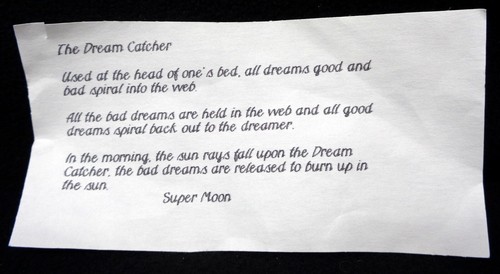 The Dream Catcher
Used at the head of one's bed, all dreams good and
bad spiral into the web.
All the bad dreams are held in the web and all good
dreams spiral back out to the dreamer.
In the morning, the sun rays fall upon the Dream
Catcher, the bad dreams are released to burn up in
the sun.
Super Moon